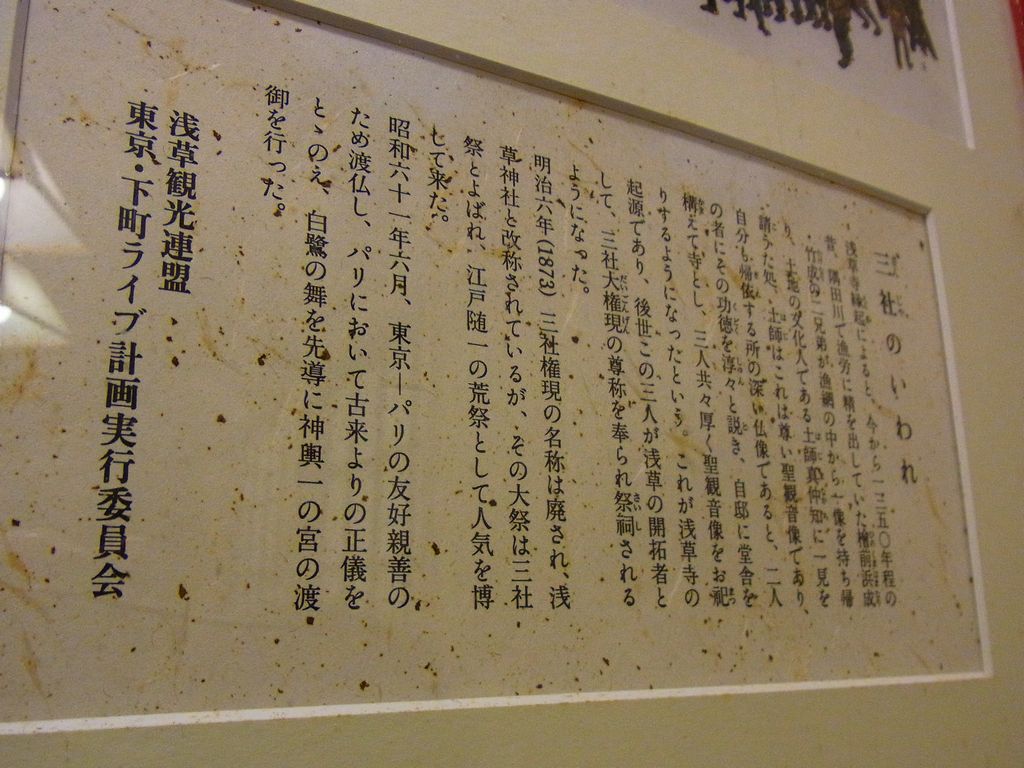 三社のいわれ
浅草寺縁起によると、今から一三五〇年程の
昔、隅田川で漁労に精を出していた檜前浜成
・竹成の二兄弟が漁網の中から一像を持ち帰
り、土地の文化人である土師真仲知に一見を
請うた処、土師はこれは尊い聖観音像であり、
自分も帰依する所の深い仏像であると、二人
の者にその功徳を淳々と説き、自邸に堂舎を
構えて寺とし、三人共々厚く聖観音像をお祀
りするようになったという。これが浅草寺の
起源であり、後世この三人が浅草の開拓者と
して、三社大権現の尊称を奉られ祭祠される
ようになった。
明治六年(1873)三社権現の名称は廃され、浅
草神社と改称されているが、その大祭は三社
祭とよばれ、江戸随一の荒祭として人気を博
して来た。
昭和六十一年六月、東京ーパリの友好親善の
ため渡仏し、パリにおいて古来よりの正儀を
とゝのえ、白鷺の舞を先導に神輿一の宮の渡
御を行った。
浅草観光連盟
東京・下町ライブ計画実行委員会